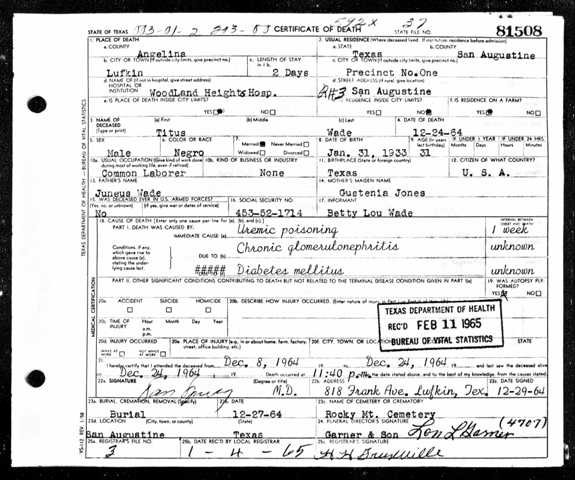 STATE OF TEXAS
CERTIFICATE OF DEATH
STATE FILE NO.
81508
1. PLACE OF DEATH
a. COUNTY
Angelina
2. USUAL RESIDENCE (Where deceased lived. If institution: residence before admission)
a. STATE
Texas
b. COUNTY
San Augustine
b. CITY OR TOWN (If outside city limits, give precinct no.)
Lufkin
c. LENGTH OF STAY in 1 b.
2 Days
c. CITY OR TOWN (If outside city limits, give precinct no.)
Precinct No.One
d. NAME OF (If not in hospital, give street address) HOSPITAL OR INSTITUTION
WoodLand Heights Hosp.
d. STREET ADDRESS (If rural, give location)
RH3 San Augustine
e. IS PLACE OF DEATH INSIDE CITY LIMITS?
YES NO
e. IS RESIDENCE INSIDE CITY LIMITS?
YES NO
f. IS RESIDENCE ON A FARM?
YES NO
3. NAME OF DECEASED (Type or print)
(a) First
Titus
(b) Middle
(c) Last
Wade
4. DATE OF DEATH
12-24-64
5. SEX
Male
6. COLOR OR RACE
Negro
7. Married Never Married
Widowed Divorced
8. DATE OF BIRTH
Jan. 31, 1933
9. AGE
31
IF UNDER 1 YEAR
Months Days
IF UNDER 24 HRS
Hours Min.
10a. USUAL OCCUPATION (Give kind of work done during most of working life, even if retired)
Common Laborer
10b. KIND OF BUSINESS OR INDUSTRY
None
11. BIRTHPLACE (State or foreign country)
Texas
12. CITIZEN OF WHAT COUNTRY?
U. S. A.
13. FATHER'S NAME
Juneus Wade
14. MOTHER'S MAIDEN NAME
Gustenia Jones
15. WAS DECEASED EVER IN U.S. ARMED FORCES?
(Yes, no, or unknown) (If yes, give war or dates of service)
No
16. SOCIAL SECURITY NO.
453-52-1714
17. INFORMANT
Betty Lou Wade
18. CAUSE OF DEATH (Enter only one cause per line for (a), (b), and (c).)
PART I. DEATH WAS CAUSED BY:
IMMEDIATE CAUSE (a)
Uremic poisoning
INTERVAL BETWEEN ONSET AND DEATH
1 week
Conditions, if any, which gave rise to above cause (a), stating the underlying cause last.
DUE TO (b)
Chronic glomerulonephritis
unknown
##### Diabetes mellitus
unknown
PART II. OTHER SIGNIFICANT CONDITIONS CONTRIBUTING TO DEATH BUT NOT RELATED TO THE TERMINAL DISEASE CONDITION GIVEN IN PART I(a)
19. WAS AUTOPSY PERFORMED?
YES NO
20a. ACCIDENT SUICIDE HOMICIDE
20b. DESCRIBE HOW INJURY OCCURRED.
20c. TIME OF INJURY
a.m.
p.m.
TEXAS DEPARTMENT OF HEALTH
REC'D FEB 11 1965
BUREAU OF VITAL STATISTICS
20d. INJURY OCCURRED
20e. PLACE OF INJURY (e.g., in or about home, farm, factory, street, office building, etc.)
20f. CITY, TOWN, OR LOCATION
21. I hereby certify that I attended the deceased from
Dec. 8, 1964
to
Dec. 24, 1964
and last saw the deceased alive
on
Dec. 24, 1964
Death occurred at
11:40 p.
m. on the date stated above, and to the best of my knowledge, from the causes stated.
22a. SIGNATURE
(Degree or title)
M.D.
22b. ADDRESS
818 Frank Ave. Lufkin, Tex.
22c. DATE SIGNED
12-29-64
23a. BURIAL, CREMATION, REMOVAL (Specify)
Burial
23b. DATE
12-27-64
23c. NAME OF CEMETERY OR CREMATORY
Rocky Mt. Cemetery
23d. LOCATION (City, town, or county) (State)
San Augustine Texas
24. FUNERAL DIRECTOR'S SIGNATURE
Garner & Son Lon L Garner (4707)
25a. REGISTRAR'S FILE NO.
3
25b. DATE REC'D BY LOCAL REGISTRAR
1-4-65
25c. REGISTRAR'S SIGNATURE
TEXAS DEPARTMENT OF HEALTH — BUREAU OF VITAL STATISTICS
MEDICAL CERTIFICATION
VS-112 REV. 1-58